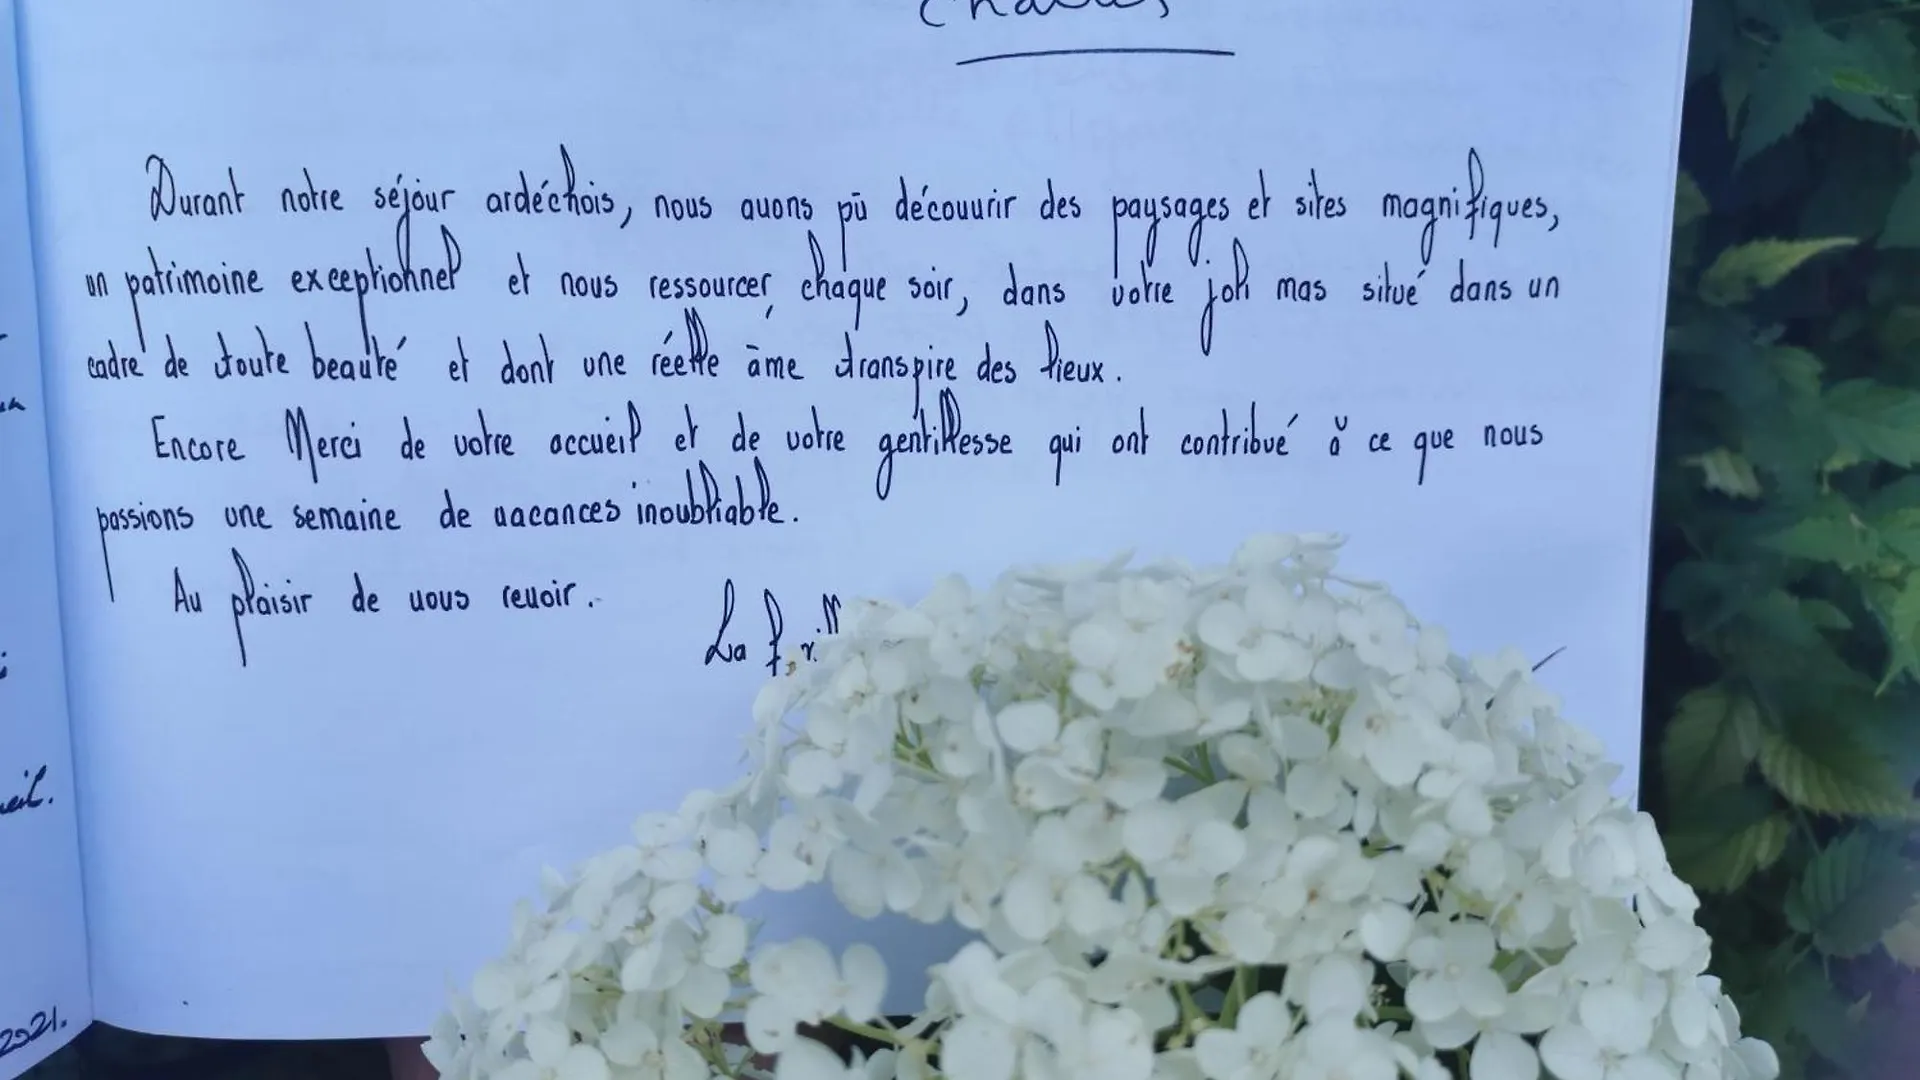 Durant notre séjour ardéchois, nous avons pū découvrir des paysages et sites magnifiques,
un patrimoine exceptionnel et nous ressourcer, chaque soir, dans votre joli mas situé dans un
cadre de toute beauté et dont une réelle āme transpire des lieux.
Encore Merci de votre accueil et de votre gentillesse qui ont contribué à ce que nous
passions une semaine de vacances inoubliable.
Au plaisir de vous revoir.
La
2021.